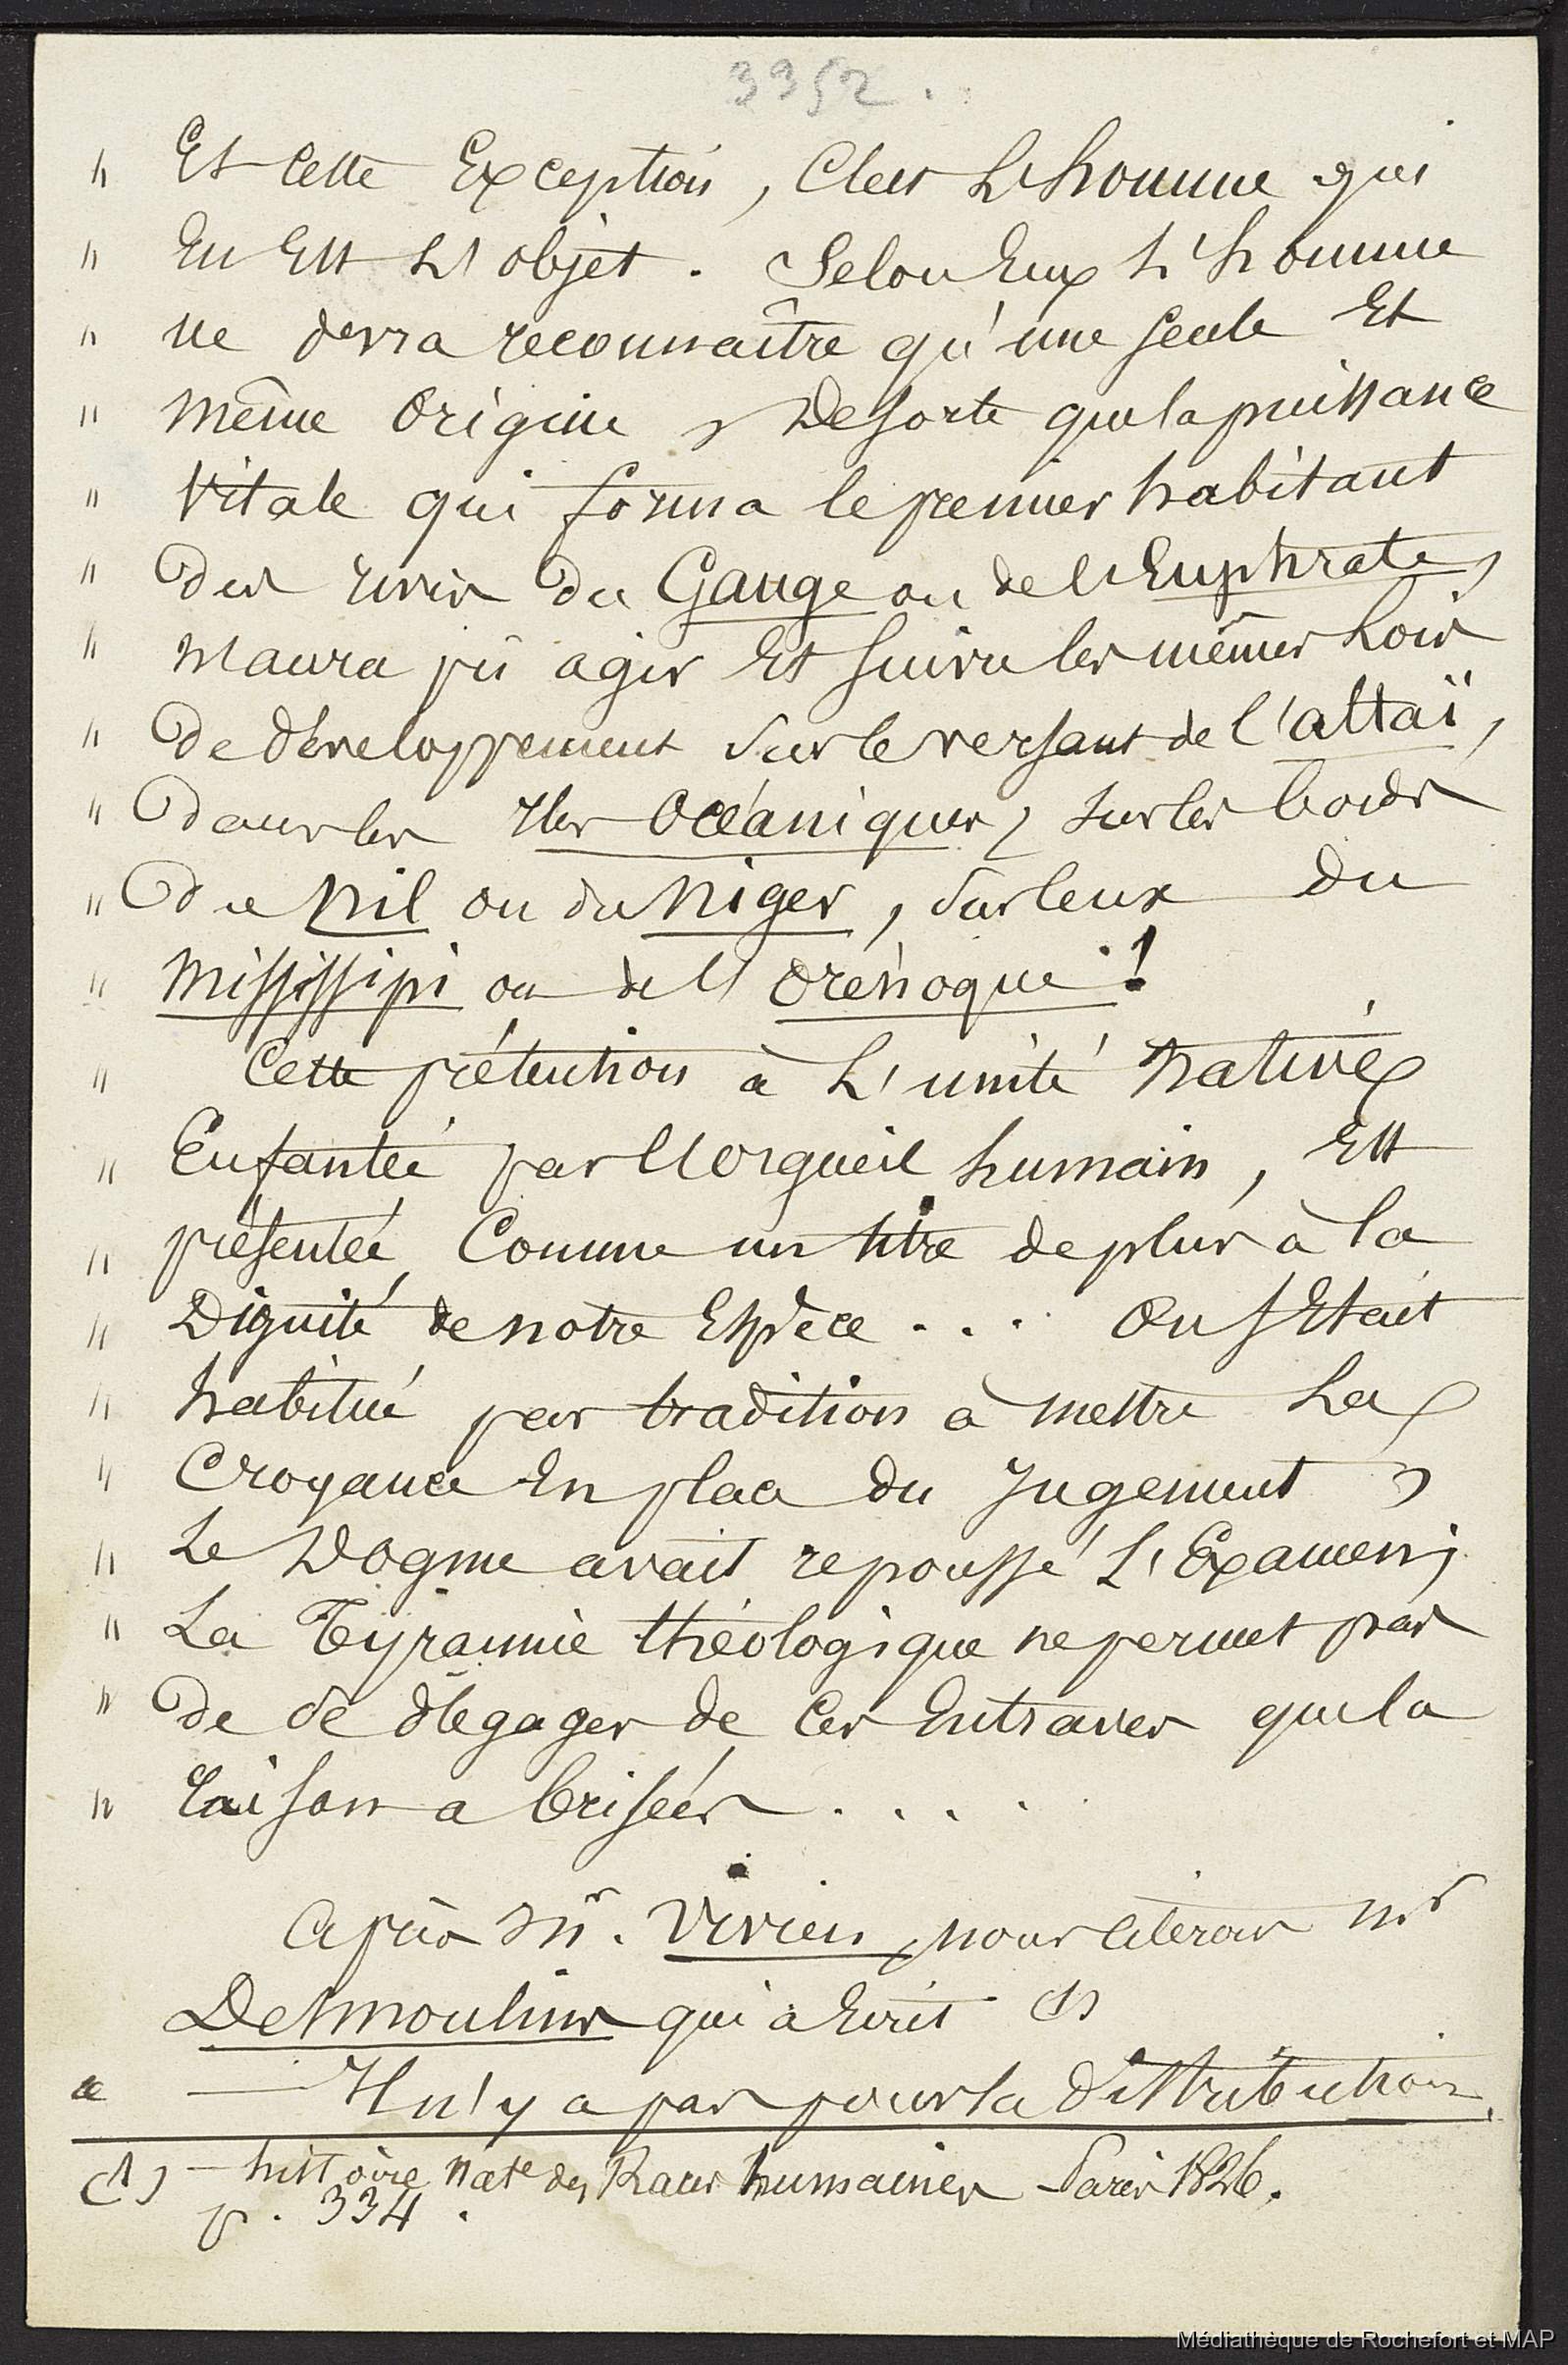 3352.
" Et cette Exception, C'est L'homme qui
" En Est L'objet. Selon Eux L'homme
" ne devra reconnaître qu'une seule Et
" même Origine, De sorte que la puissance
" Vitale qui forma le premier habitant
" des rives du Gange ou de l'Euphrate,
" N'aura pû agir Et suivre les mêmes Lois
" De développement sur le versant de l'altaï,
" Dans les Iles Océaniques, sur les bords
" Du Nil ou du Niger, sur ceux du
" Mississipi ou de l'Orénoque !
" Cette prétention à L'unité native
" Enfantée par l'Orgueil humain, Est
" présentée Comme un titre de plus à la
" Dignité de notre Espèce . . . On s'Etait
" habitué par tradition à mettre La
" Croyance En place du Jugement,
" Le Dogme avait repoussé L'Examen;
" La Tyrannie théologique ne permet pas
" De se dégager de Ces Entraves que la
" raison a brisées . . . .
Après Mr. Vivien, nous citerons Mr
Desmoulins qui a Ecrit (1)
« — Il n'y a pas pour la distribution
(1) — histoire natle des Races humaines Paris 1826.
p. 334.
Médiathèque de Rochefort et MAP